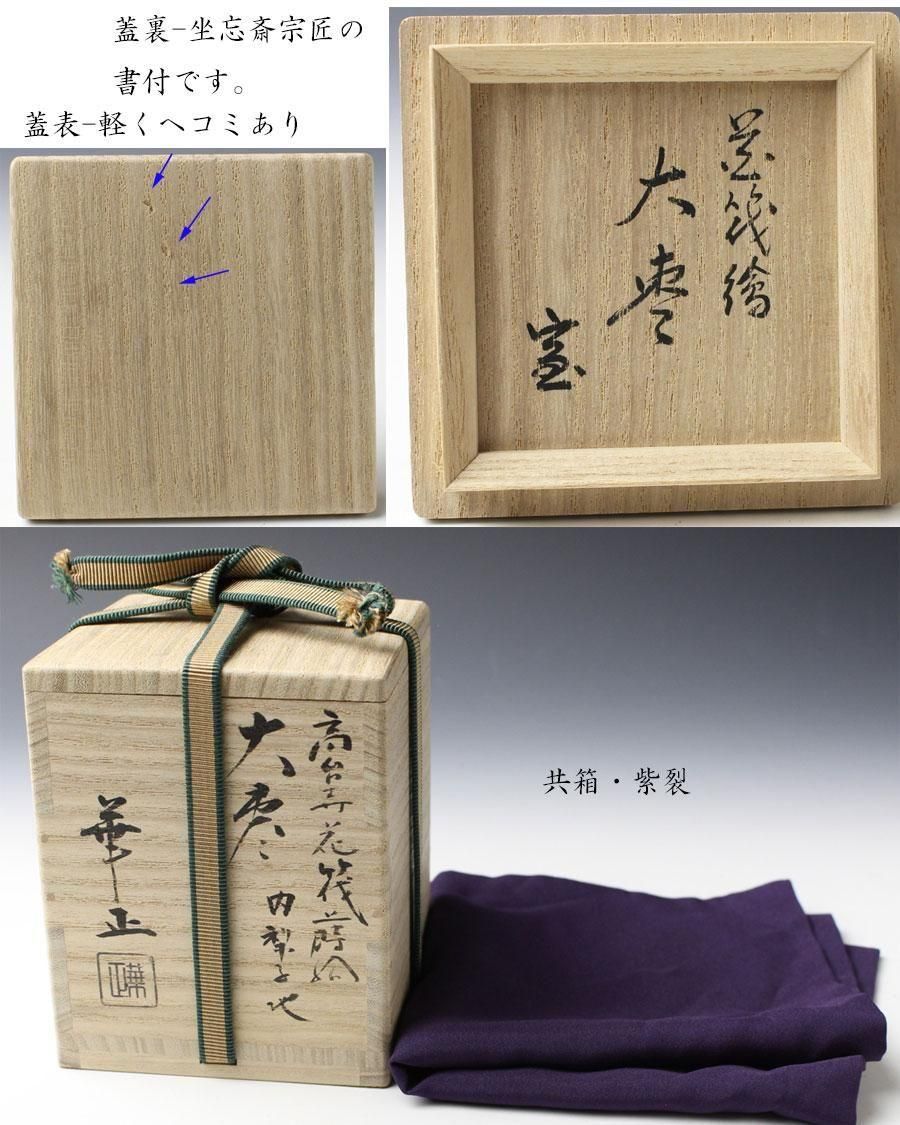 蓋裏-坐忘斎宗匠の
書付です。
蓋表-軽くヘコミあり
花筏繪
大棗
室
高台寺花筏蒔絵
大棗
内梨子地
華正
共箱・紫裂